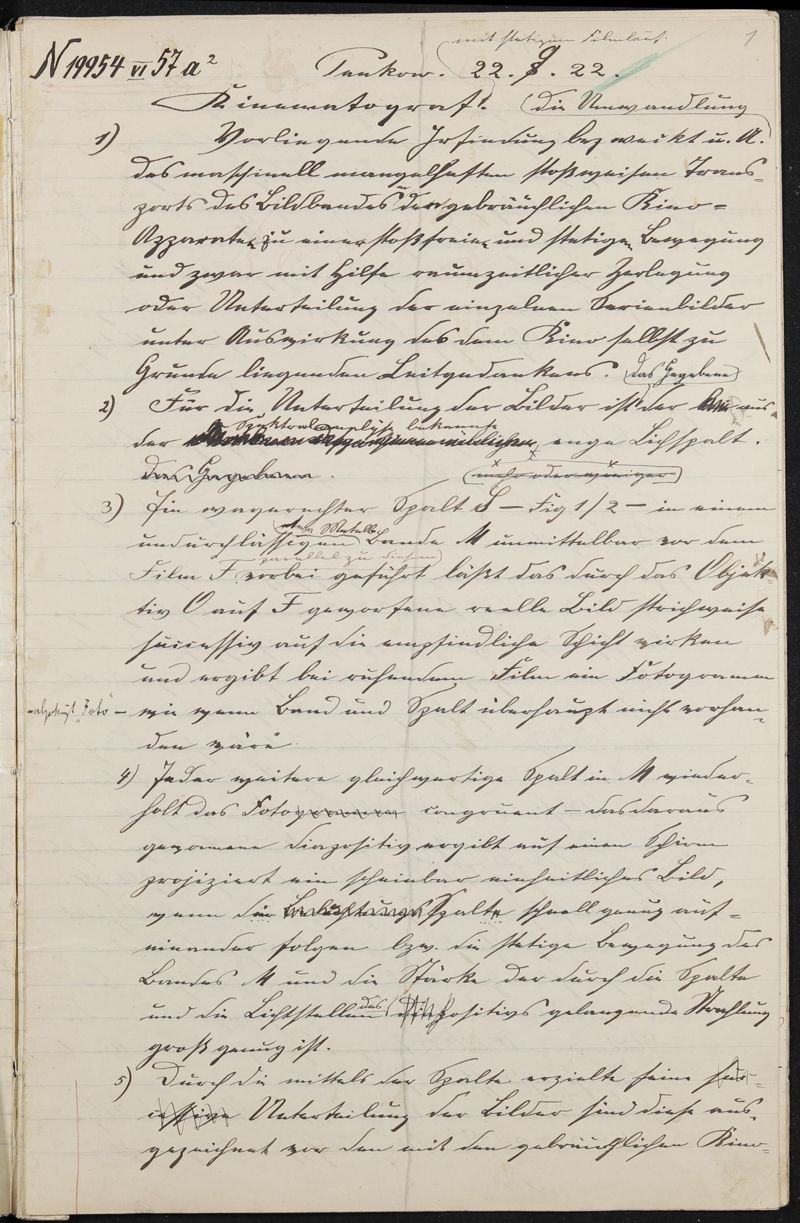 mit stetigem Filmlauf. 1
N 19954 VI 57 a² Pankow. 22. 9. 22.
Kinematograf! (die Umwandlung
1) Vorliegende Erfindung bezweckt u. A.
des maschinell mangelhaften stoßweisen Trans-
ports des Bildbandes der gebräuchlichen Kino-
Apparate zu einer stoßfreien und stetigen Bewegung
und zwar mit Hilfe raumzeitlicher Zerlegung
oder Unterteilung der einzelnen Serienbilder
unter Auswirkung des dem Kino selbst zu
Grunde liegenden Leitgedankens. (das Gegebene)
2) Für die Unterteilung der Bilder ist der aus
Spektralanalyse bekannte
der enge Lichtspalt.
das Gegebene. (mehr oder weniger)
3) Ein wagerechter Spalt S – Fig 1/2 – in einem
Metall
undurchlässigen Bande M unmittelbar vor dem
parallel zu diesem
Film F vorbei geführt läßt das durch das Objek-
tiv O auf F geworfene reelle Bild strichweise
successiv auf die empfindliche Schicht wirken
und ergibt bei ruhendem Film ein Fotogramm
– abgekürzt "Foto" – wie wenn Band und Spalt überhaupt nicht vorhan-
den wäre
4) Jeder weitere gleichwertige Spalt in M wieder-
holt das Fotogramm congruent – das daraus
gewonnene Diapositiv ergibt auf einen Schirm
projiziert ein scheinbar einheitliches Bild,
wenn die Spalte schnell genug auf-
einander folgen bzw. die stetige Bewegung des
Bandes M und die Stärke der durch die Spalte
und die Lichtstellen des Positivs gelangende Strahlung
groß genug ist.
5) Durch die mittels der Spalte erzielte feine suc-
cessive Unterteilung der Bilder sind diese aus-
gezeichnet vor den mit den gebräuchlichen Kino-